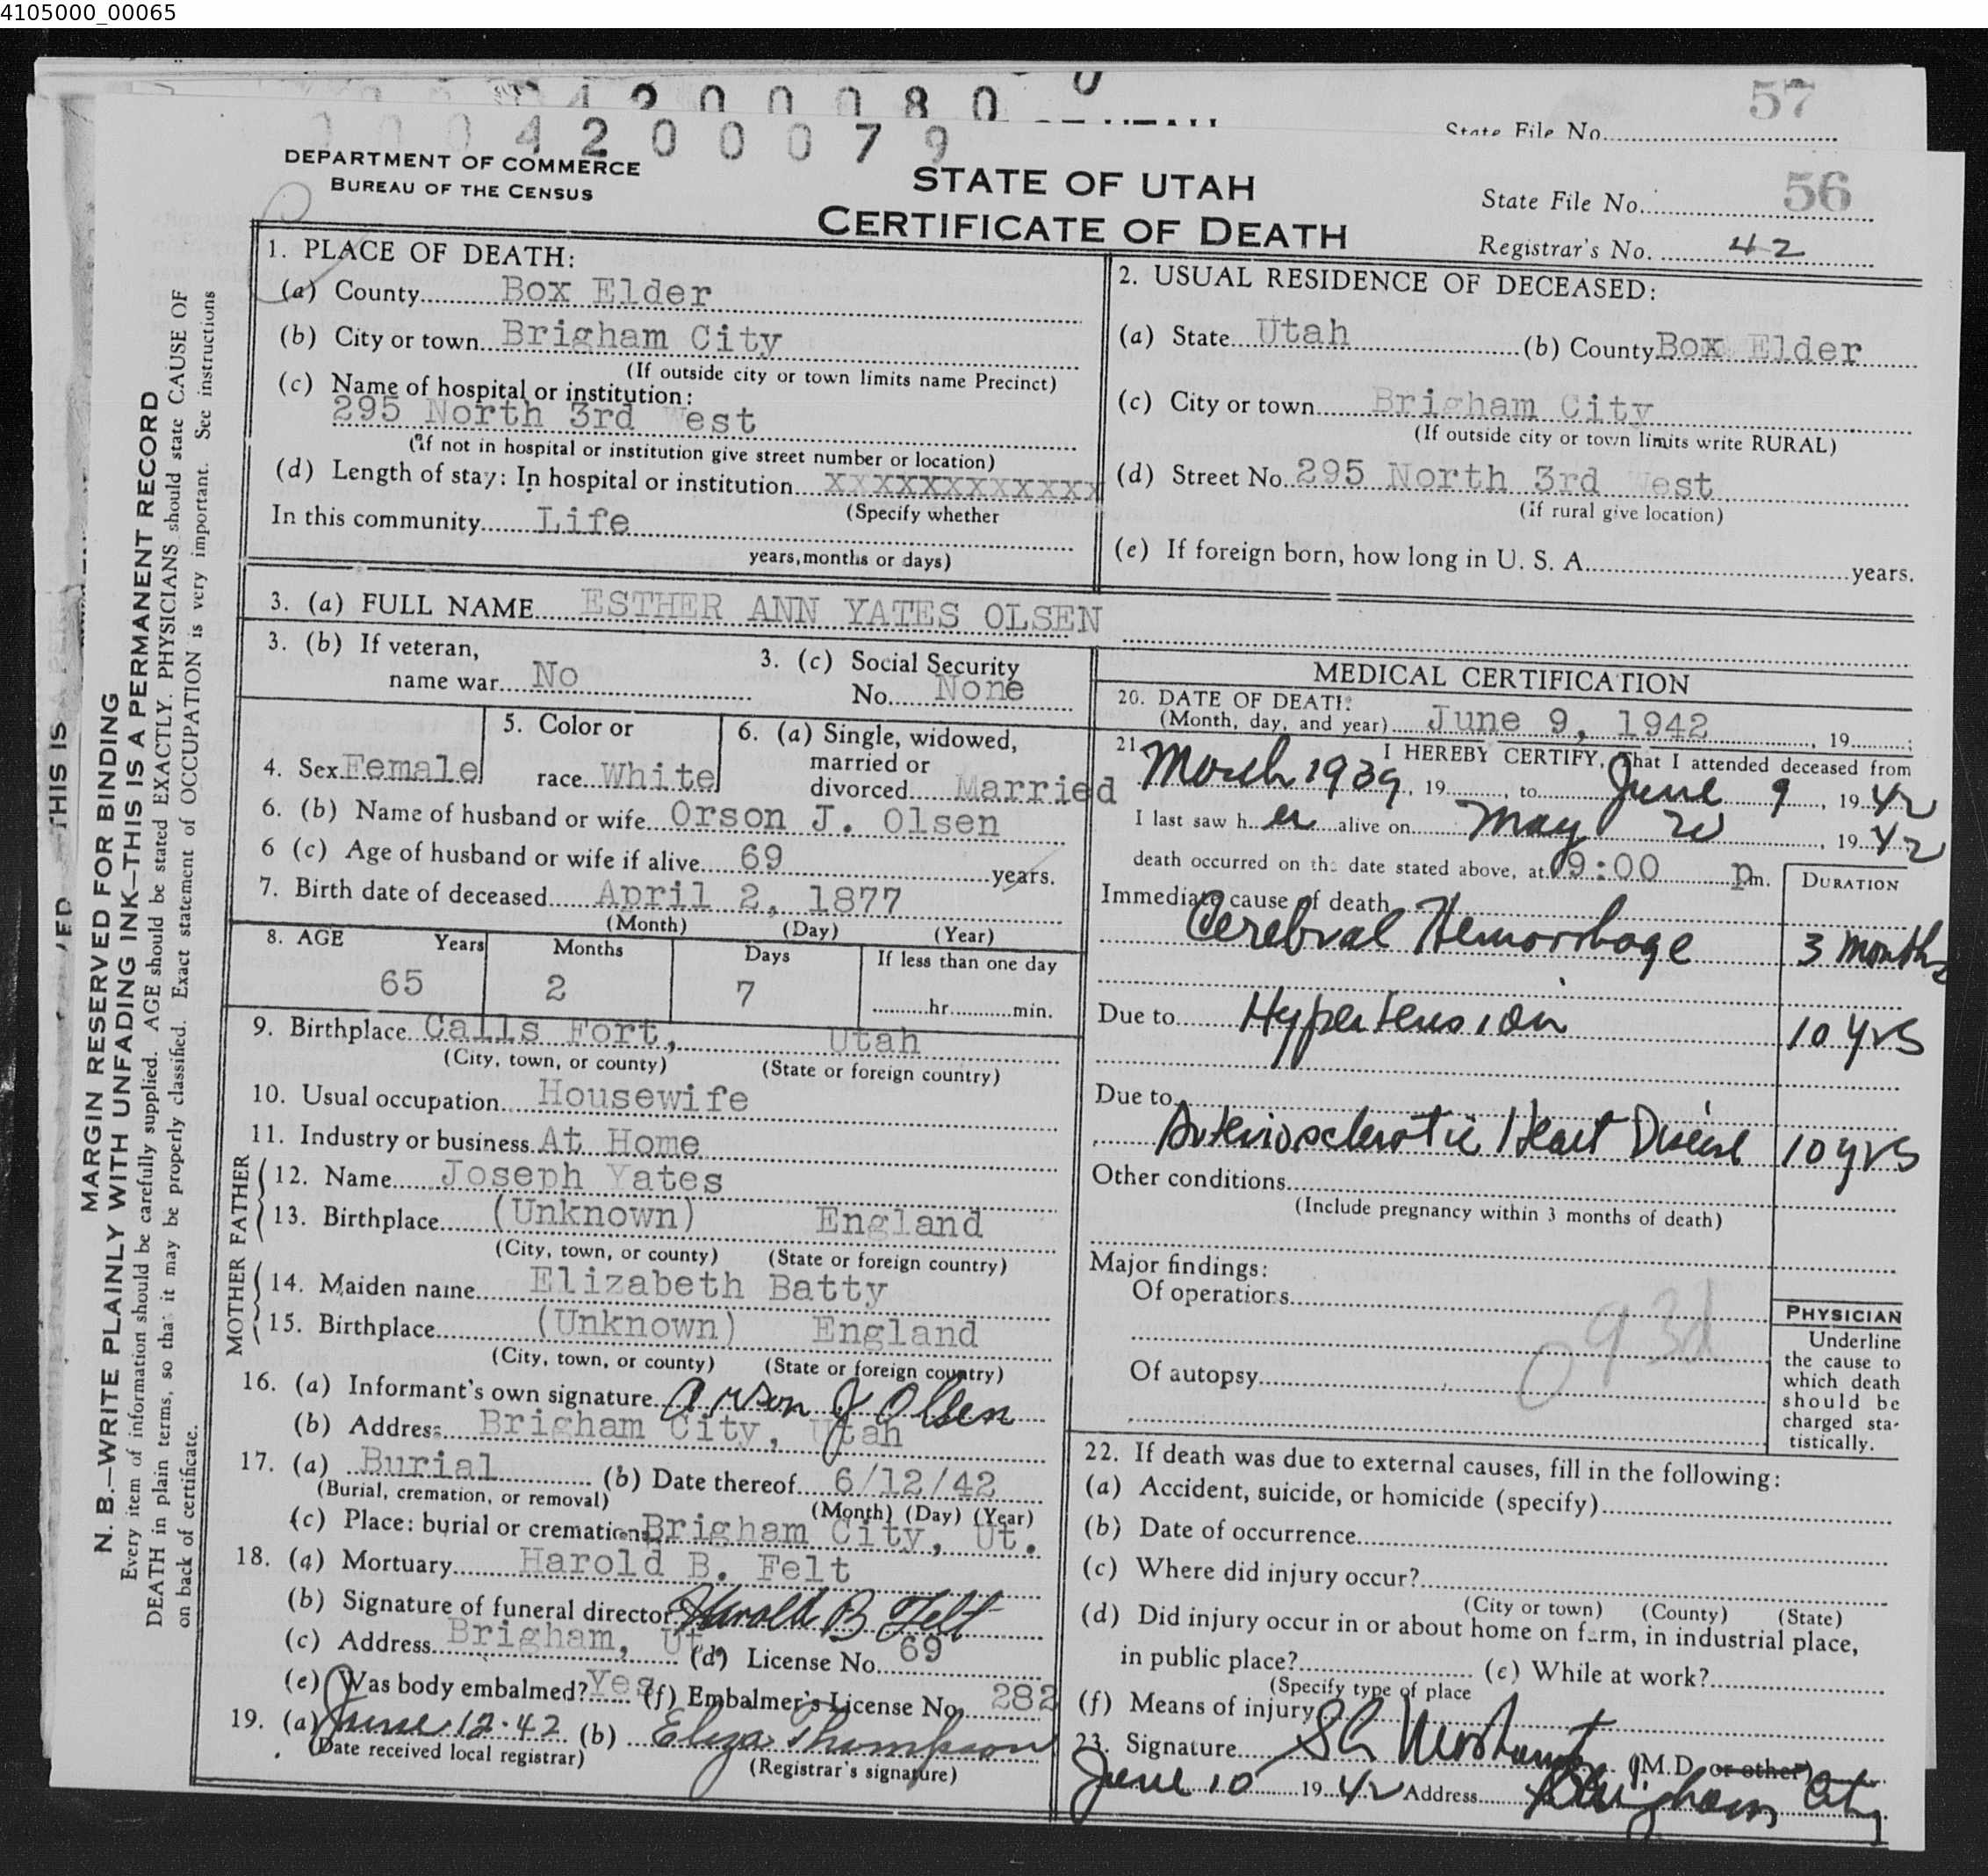 4105000_00065
4 2 0 0 0 8 0
57
State File No.
0 0 0 4 2 0 0 0 7 9
DEPARTMENT OF COMMERCE
BUREAU OF THE CENSUS
STATE OF UTAH
CERTIFICATE OF DEATH
State File No. 56
Registrar's No. 42
MARGIN RESERVED FOR BINDING
N. B.—WRITE PLAINLY WITH UNFADING INK—THIS IS A PERMANENT RECORD
Every item of information should be carefully supplied. AGE should be stated EXACTLY. PHYSICIANS should state CAUSE OF
DEATH in plain terms, so that it may be properly classified. Exact statement of OCCUPATION is very important. See instructions
on back of certificate.
THIS IS
1. PLACE OF DEATH:
(a) County Box Elder
(b) City or town Brigham City
(If outside city or town limits name Precinct)
(c) Name of hospital or institution:
295 North 3rd West
(if not in hospital or institution give street number or location)
(d) Length of stay: In hospital or institution XXXXXXXXXXXX
(Specify whether
In this community Life
years, months or days)
2. USUAL RESIDENCE OF DECEASED:
(a) State Utah (b) County Box Elder
(c) City or town Brigham City
(If outside city or town limits write RURAL)
(d) Street No. 295 North 3rd West
(if rural give location)
(e) If foreign born, how long in U. S. A. years.
3. (a) FULL NAME ESTHER ANN YATES OLSEN
3. (b) If veteran,
name war No
3. (c) Social Security
No. None
4. Sex Female
5. Color or
race White
6. (a) Single, widowed,
married or
divorced Married
6. (b) Name of husband or wife Orson J. Olsen
6 (c) Age of husband or wife if alive 69 years.
7. Birth date of deceased April 2, 1877
(Month) (Day) (Year)
8. AGE Years Months Days If less than one day
65 2 7 hr. min.
9. Birthplace Calls Fort, Utah
(City, town, or county) (State or foreign country)
10. Usual occupation Housewife
11. Industry or business At Home
FATHER
12. Name Joseph Yates
13. Birthplace (Unknown) England
(City, town, or county) (State or foreign country)
MOTHER
14. Maiden name Elizabeth Batty
15. Birthplace (Unknown) England
(City, town, or county) (State or foreign country)
16. (a) Informant's own signature Orson J Olsen
(b) Address Brigham City, Utah
17. (a) Burial (b) Date thereof 6/12/42
(Burial, cremation, or removal) (Month) (Day) (Year)
(c) Place: burial or cremation Brigham City, Ut.
18. (a) Mortuary Harold B. Felt
(b) Signature of funeral director Harold B Felt
(c) Address Brigham, Ut. (d) License No. 69
(e) Was body embalmed? Yes (f) Embalmer's License No. 282
19. (a) June 12-42 (b) Eliza Thompson
(Date received local registrar) (Registrar's signature)
MEDICAL CERTIFICATION
20. DATE OF DEATH:
(Month, day, and year) June 9, 1942, 19 ;
21. I HEREBY CERTIFY, That I attended deceased from
March 1939, 19 , to June 9, 1942
I last saw her alive on May 20, 1942
death occurred on the date stated above, at 09:00 pm.
DURATION
Immediate cause of death
Cerebral Hemorrhage 3 months
Due to Hypertension 10 yrs
Due to
Arteriosclerotic Heart Disease 10 yrs
Other conditions
(Include pregnancy within 3 months of death)
Major findings:
Of operations
093d
Of autopsy
PHYSICIAN
Underline
the cause to
which death
should be
charged sta-
tistically.
22. If death was due to external causes, fill in the following:
(a) Accident, suicide, or homicide (specify)
(b) Date of occurrence
(c) Where did injury occur?
(City or town) (County) (State)
(d) Did injury occur in or about home on farm, in industrial place,
in public place? (e) While at work?
(Specify type of place
(f) Means of injury
23. Signature (M.D. or other)
June 10 1942 Address Brigham City